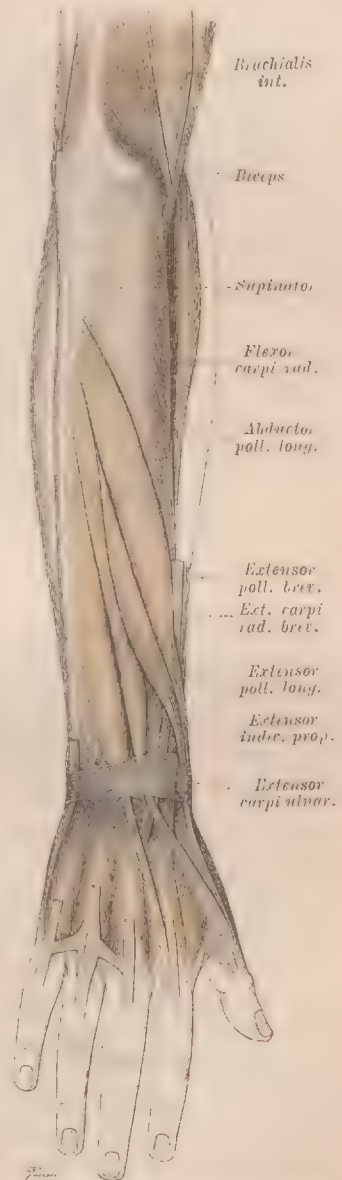 Brachialis
int.
Biceps
Supinator
Flexor
carpi rad.
Abductor
poll. long.
Extensor
poll. brev.
Ext. carpi
rad. brev.
Extensor
poll. long.
Extensor
indic. prop.
Extensor
carpi ulnar.